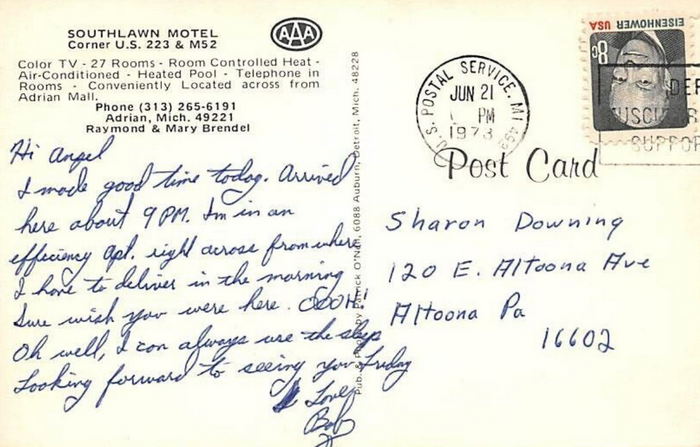 SOUTHLAWN MOTEL
Corner U.S. 223 & M52
AAA
Color TV - 27 Rooms - Room Controlled Heat -
Air-Conditioned - Heated Pool - Telephone in
Rooms - Conveniently Located across from
Adrian Mall.
Phone (313) 265-6191
Adrian, Mich. 49221
Raymond & Mary Brendel
Hi Angel
I made good time today. Arrived
here about 9 PM. Im in an
efficiency apt. right across from where
I have to deliver in the morning
Sure wish you were here. OOOH!
Oh well, I can always use the sleep
Looking forward to seeing you Friday
Love
Bob
Pub. by Patrick O'Neil, 6088 Auburn, Detroit, Mich. 48228
U.S. POSTAL SERVICE, MI
JUN 21
PM
1973
EISENHOWER USA
8c
SUPPOR
Post Card
Sharon Downing
120 E. Altoona Ave
Altoona Pa
16602